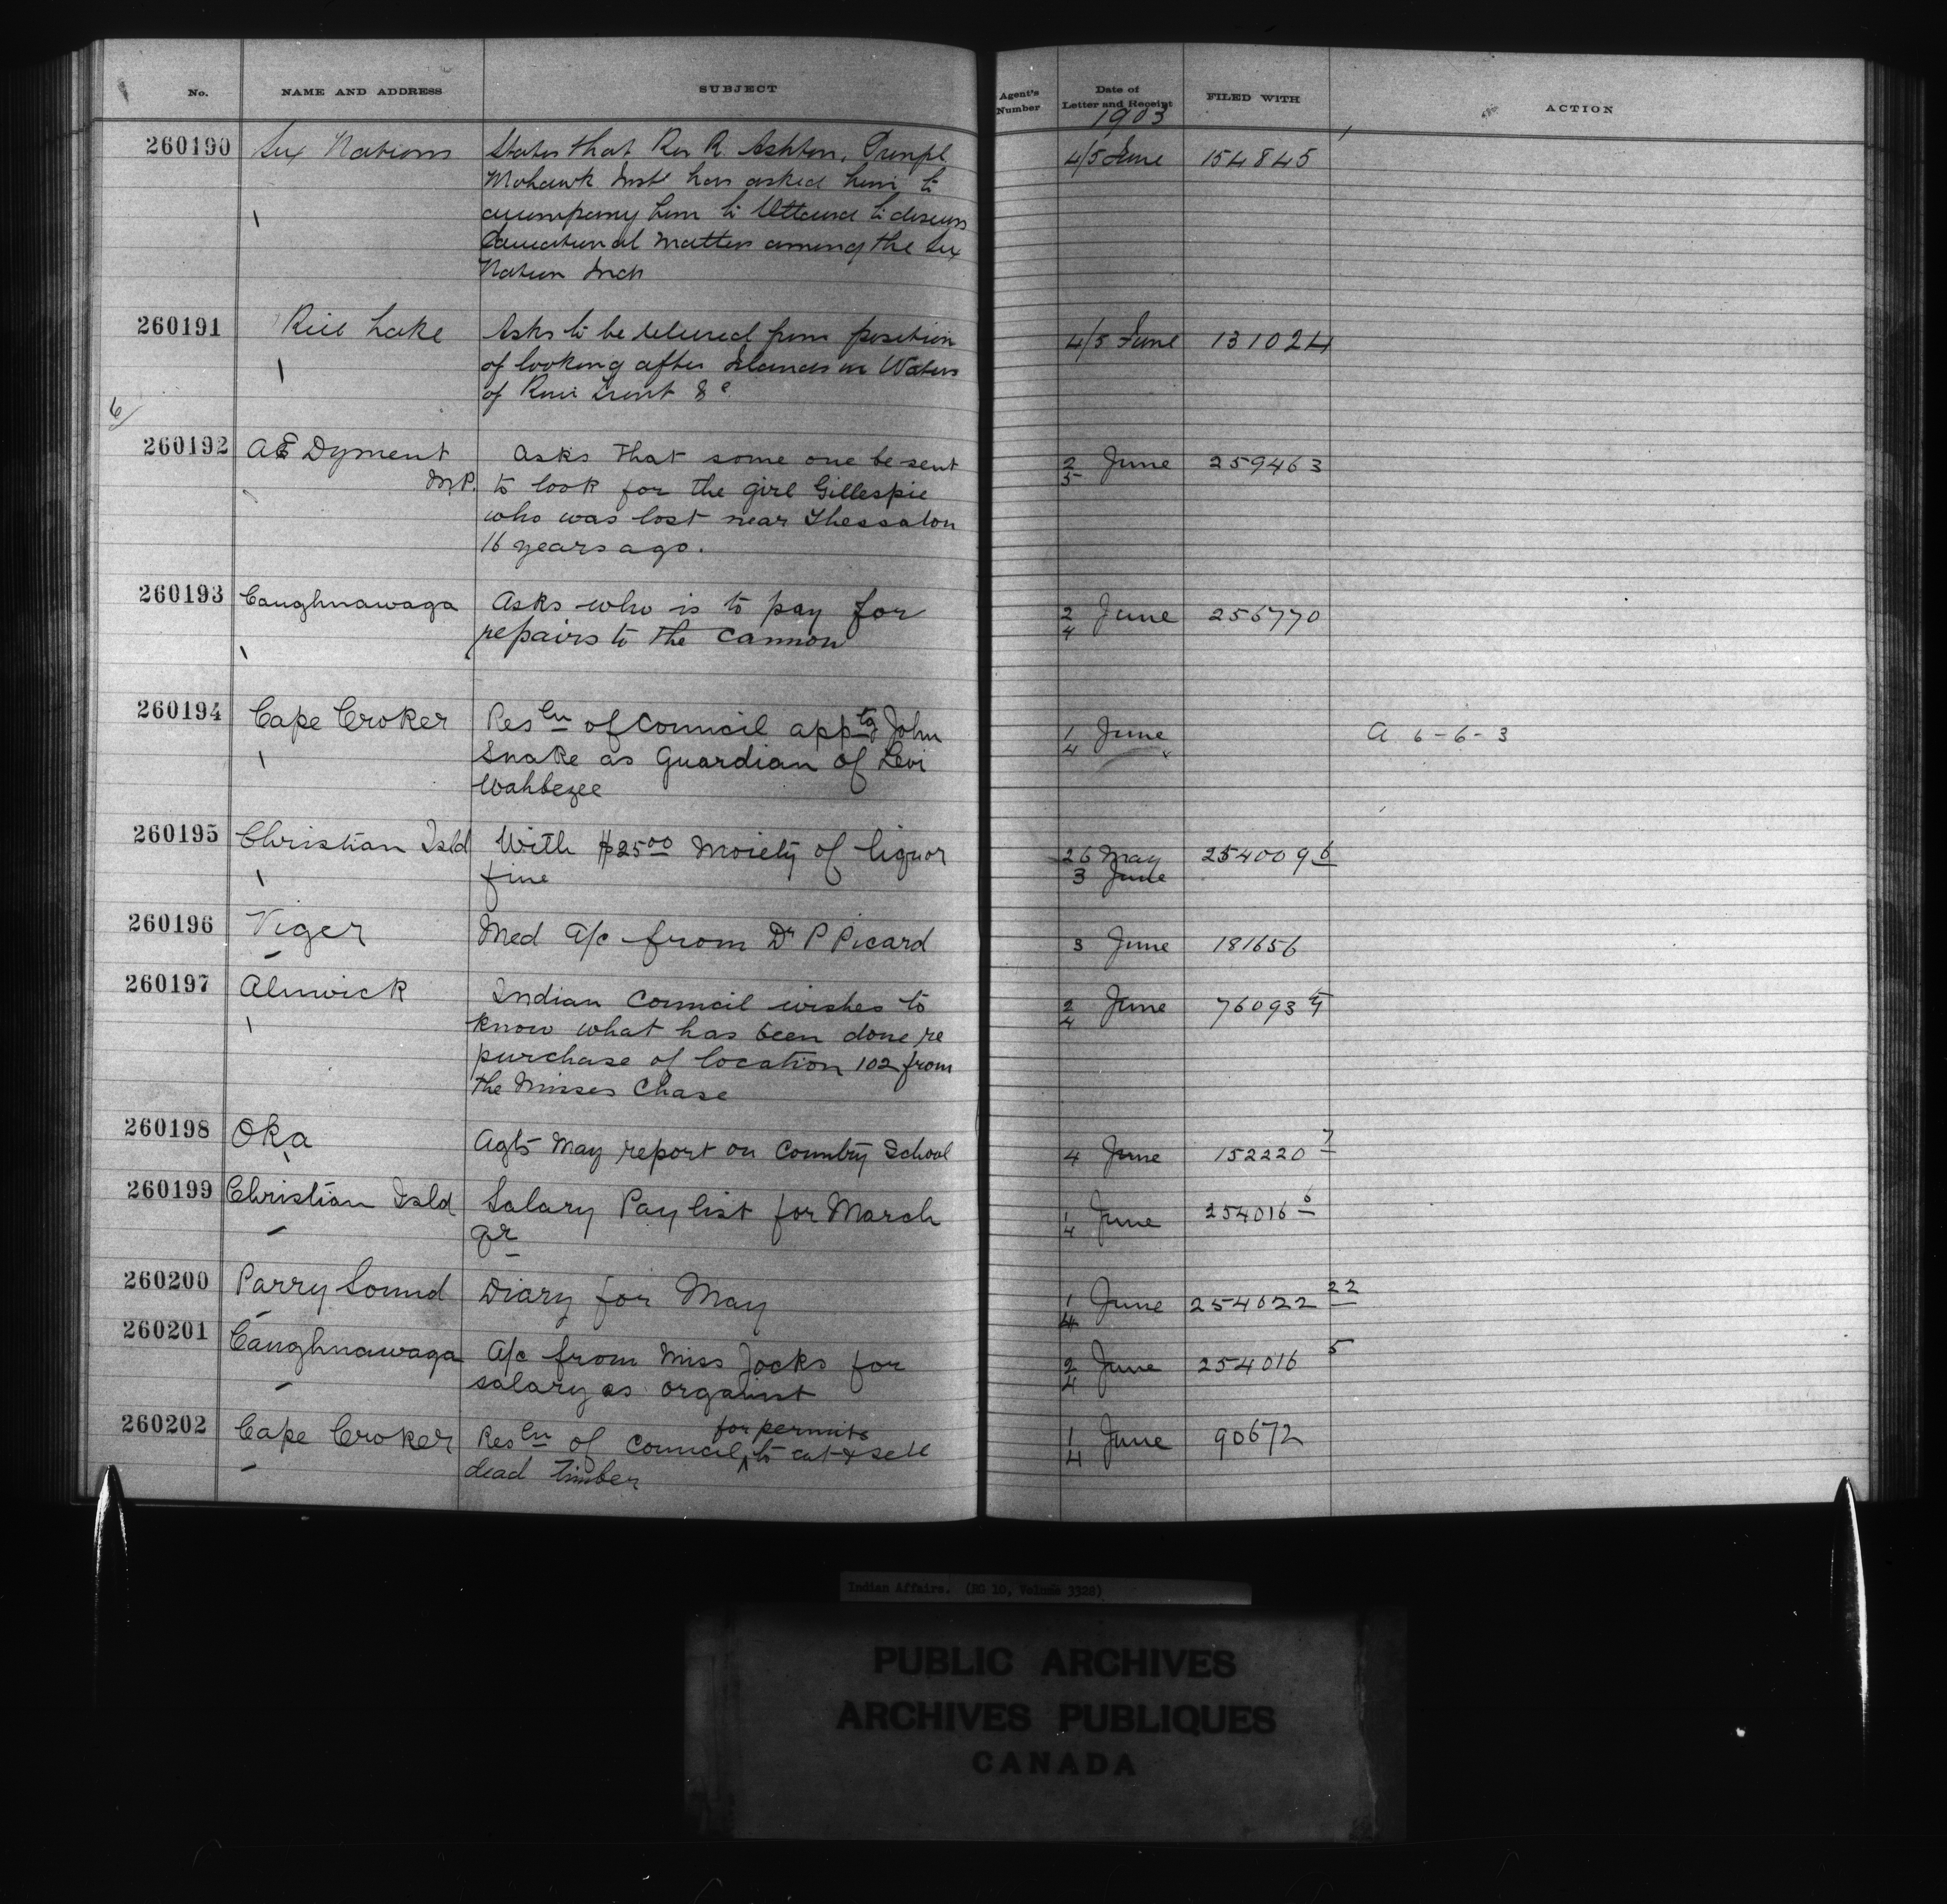 No. NAME AND ADDRESS SUBJECT Agent's Number Date of Letter and Receipt FILED WITH ACTION
1903
260190 Six Nations States that Rev R. Ashton, Prinpl 4/5 June 154845
Mohawk Inst has asked him to
accompany him to Ottawa to discuss
Educational matters among the Six
Nation Inds
260191 Rice Lake Asks to be relieved from position 4/5 June 131024
of looking after Islands in Waters
of River Trent &c.
6/
260192 AE Dyment Asks that some one be sent 2/5 June 259463
M.P. to look for the girl Gillespie
who was lost near Thessalon
16 years ago.
260193 Caughnawaga Asks who is to pay for 2/4 June 256770
repairs to the cannon
260194 Cape Croker Resln of Council apptg John 1/4 June A 6-6-3
Snake as Guardian of Levi
Wahbezee
260195 Christian Isld With $2500 Moiety of liquor 26 May 254009 6
fine 3 June
260196 Viger Med A/c from Dr P Picard 3 June 181656
260197 Alnwick Indian Council wishes to 2/4 June
know what has been done re
purchase of location 102 from
the Misses Chase
260198 Oka Agts May report on Country School 4 June 152220 7
260199 Christian Isld Salary Pay list for March 1/4 June 254016 6
qr
260200 Parry Sound Diary for May 1/4 June 254022 22
260201 Caughnawaga A/c from Miss Jocks for 2/4 June 254016 5
salary as organist
260202 Cape Croker Resln of Council for permits to cut & sell 1/4 June 90672
dead timber
Indian Affairs. (RG 10, Volume 3328)
PUBLIC ARCHIVES
ARCHIVES PUBLIQUES
CANADA